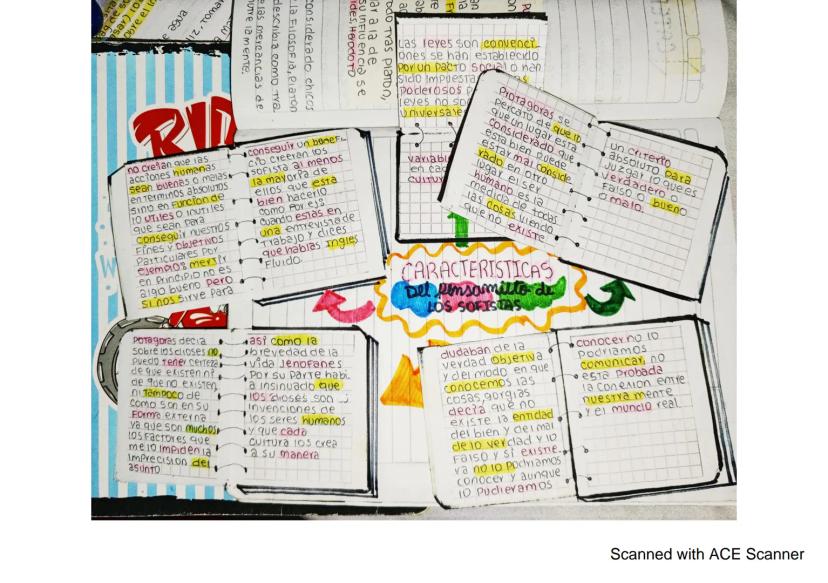 CARACTERISTICAS
Del pensamiento de
LOS SOFISTAS
Las leyes son convenci
ones se han establecido
por un pacto social o han
sido impuesta
poderosos p
leyes no so
universale
variab
en cad
cultur
protagoras se
percato de que lo
que un lugar esta
considerado que
esta bien puede
estar mal conside
rado en otro
lugar el ser
humano es la
medida de todas
las cosas viendo
que no existe
un criterio
absoluto para
Juzgar lo que es
verdadero o
Falso o bueno
o malo.
no creian que las
acciones humanas
sean buenas o malas
en terminos absolutos
sino en Funcion de
lo utiles o inutiles
que sean para
conseguir nuestros
Fines y objetivos
Particulares por
ejemplo: mentir
en principio no es
algo bueno pero
si nos sirve para
conseguir un benefi
cio creerian los
sofista al menos
la mayoria de
ellos que esta
bien hacerlo
como por ej:
cuando estas en
una entrevista de
Trabajo y dices
que hablas ingles
Fluido.
potagoras decia
sobre los dioses no
puedo tener certeza
de que existen ni
de que no existen
ni tampoco de
como son en su
Forma externa
ya que son muchos
los Factores que
me lo impiden la
imprecision del
asunto
así como la
brevedad de la
vida Jenofanes
por su parte habi
a insinuado que
los dioses son
invenciones de
los seres humanos
y que cada
cultura los crea
a su manera
dudaban de la
verdad objetiva
y del modo en que
conocemos las
cosas, gorgias
decia que no
existe la entidad
del bien y del mal
de lo verdad y lo
Falso y si existie
ra no lo podriamos
conocer y aunque
lo pudieramos
conocer no lo
podriamos
comunicar, no
esta probada
la conexion entre
nuestra mente
y el mundo real
considerado chicos
la Filosofia, platon
describia como tra
e las mercancias de
utre la mente.
odo tras platon,
ar a la de
su influencia se
ides, Herodoto
e agua
Scanned with ACE Scanner